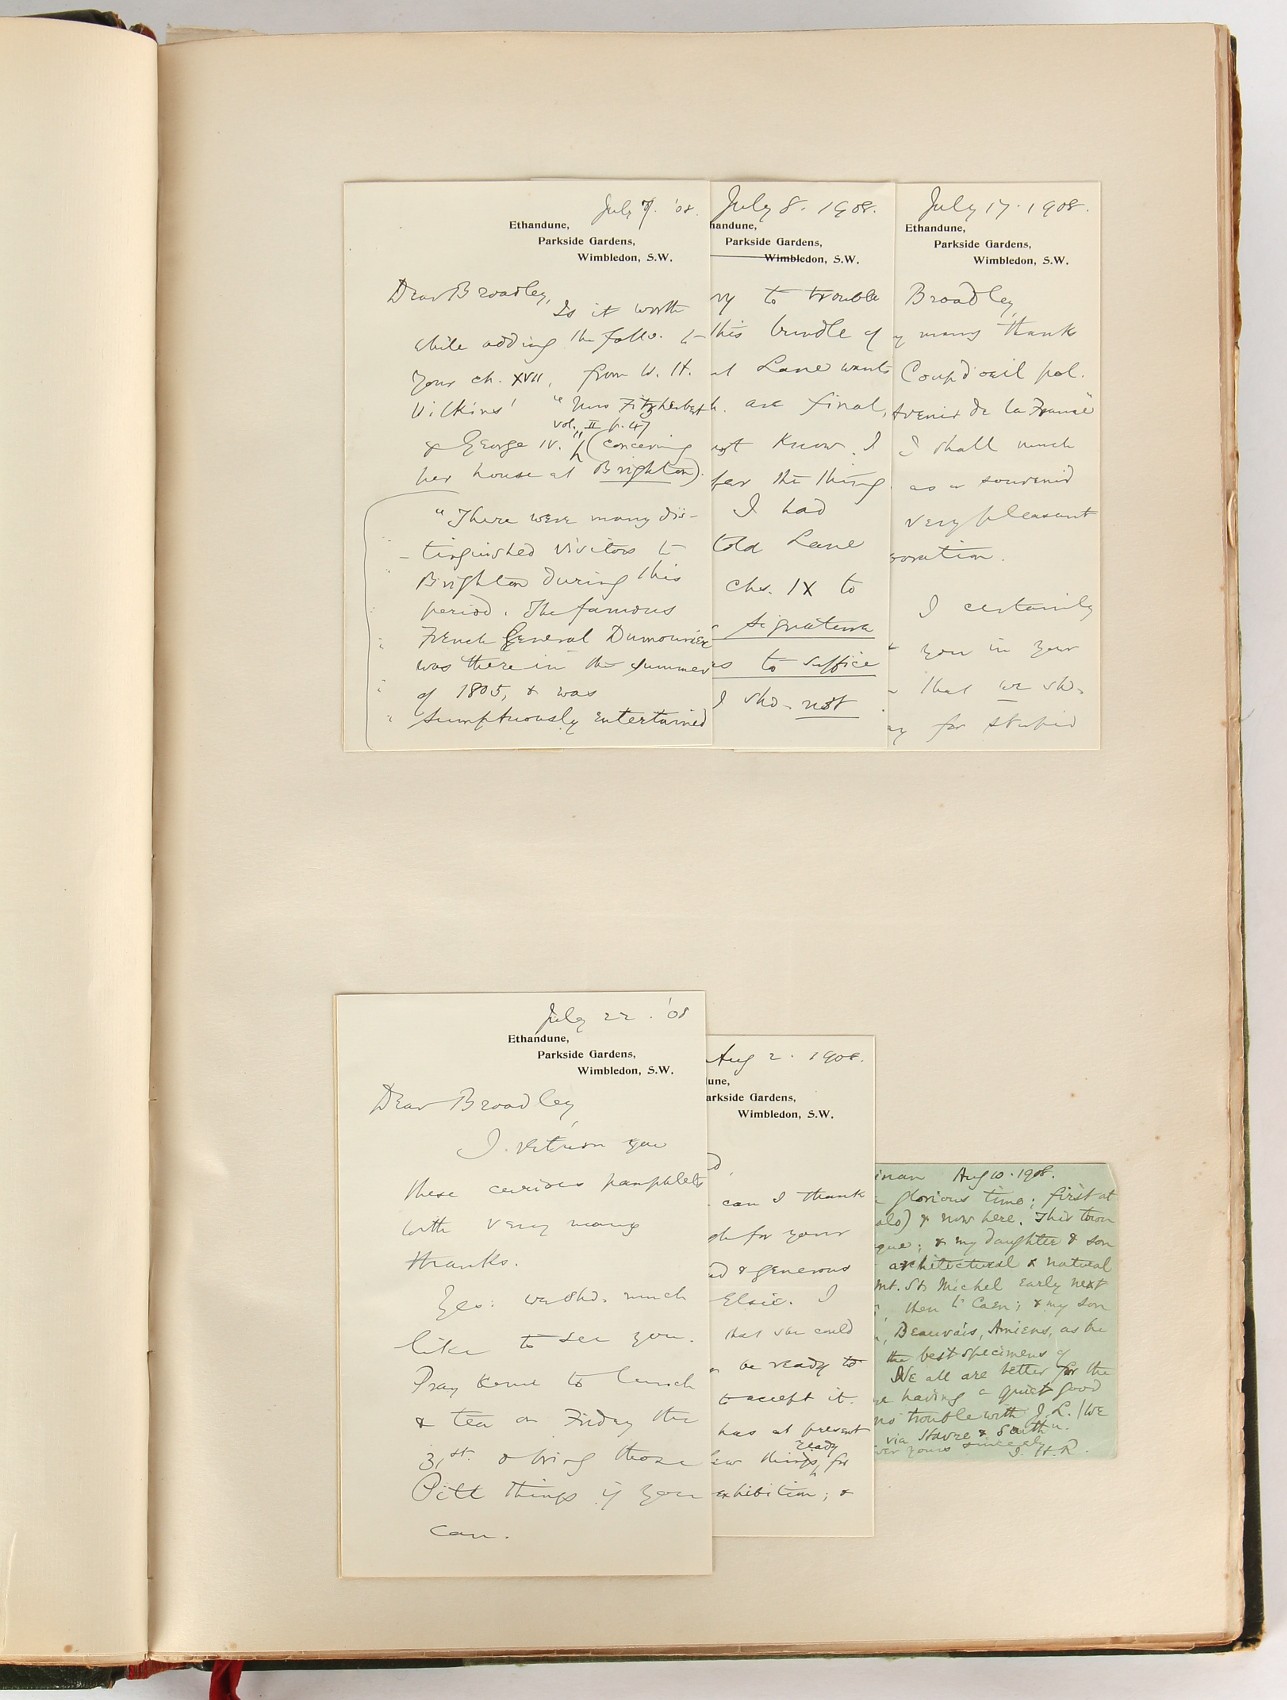 July 7. '08.
Ethandune,
Parkside Gardens,
Wimbledon, S.W.
Dear Broadley,
Is it worth
while adding the follo. to
your ch. XVII, from W. H.
Wilkins' "Mrs Fitzherbert
vol. II p. 47
& George IV." (concerning
her house at Brighton).
"There were many dis-
tinguished visitors to
Brighton during this
period. The famous
French General Dumouriez
was there in the summer
of 1805, & was
sumptuously entertained
July 8. 1908.
handune,
Parkside Gardens,
Wimbledon, S.W.
ry to trouble
this bundle of
at Lane wants
h. are final,
not know. I
far the thing.
I had
told Lane
chs. IX to
signature
as to suffice
I shd. not
July 17. 1908.
Ethandune,
Parkside Gardens,
Wimbledon, S.W.
Broadley,
y many thanks
Coup d'oeil pol.
Avenir de la France"
I shall much
as a souvenir
very pleasant
oration.
I certainly
you in your
that we shd.
ay for stupid
July 22. '08
Ethandune,
Parkside Gardens,
Wimbledon, S.W.
Dear Broadley,
I return you
these curious pamphlets
with very many
thanks.
Yes: we shd. much
like to see you.
Pray come to lunch
& tea on Friday the
31st. & bring those
Pitt things if you
can.
Aug 2. 1908.
une,
arkside Gardens,
Wimbledon, S.W.
can I thank
gh for your
nd & generous
Elsie. I
that she could
or be ready to
to accept it.
has at present
ready
few things, for
exhibition; &
inan Aug 10. 1908.
glorious time; first at
alo) & now here. This town
que; & my daughter & son
architectural & natural
Mt. St Michel early next
then to Caen; & my son
Beauvais, Amiens, as he
the best specimens of
We all are better for the
re having a quiet good
no trouble with J.L. (We
via Havre & South'n.
ver yours sincerely
J. H. R.